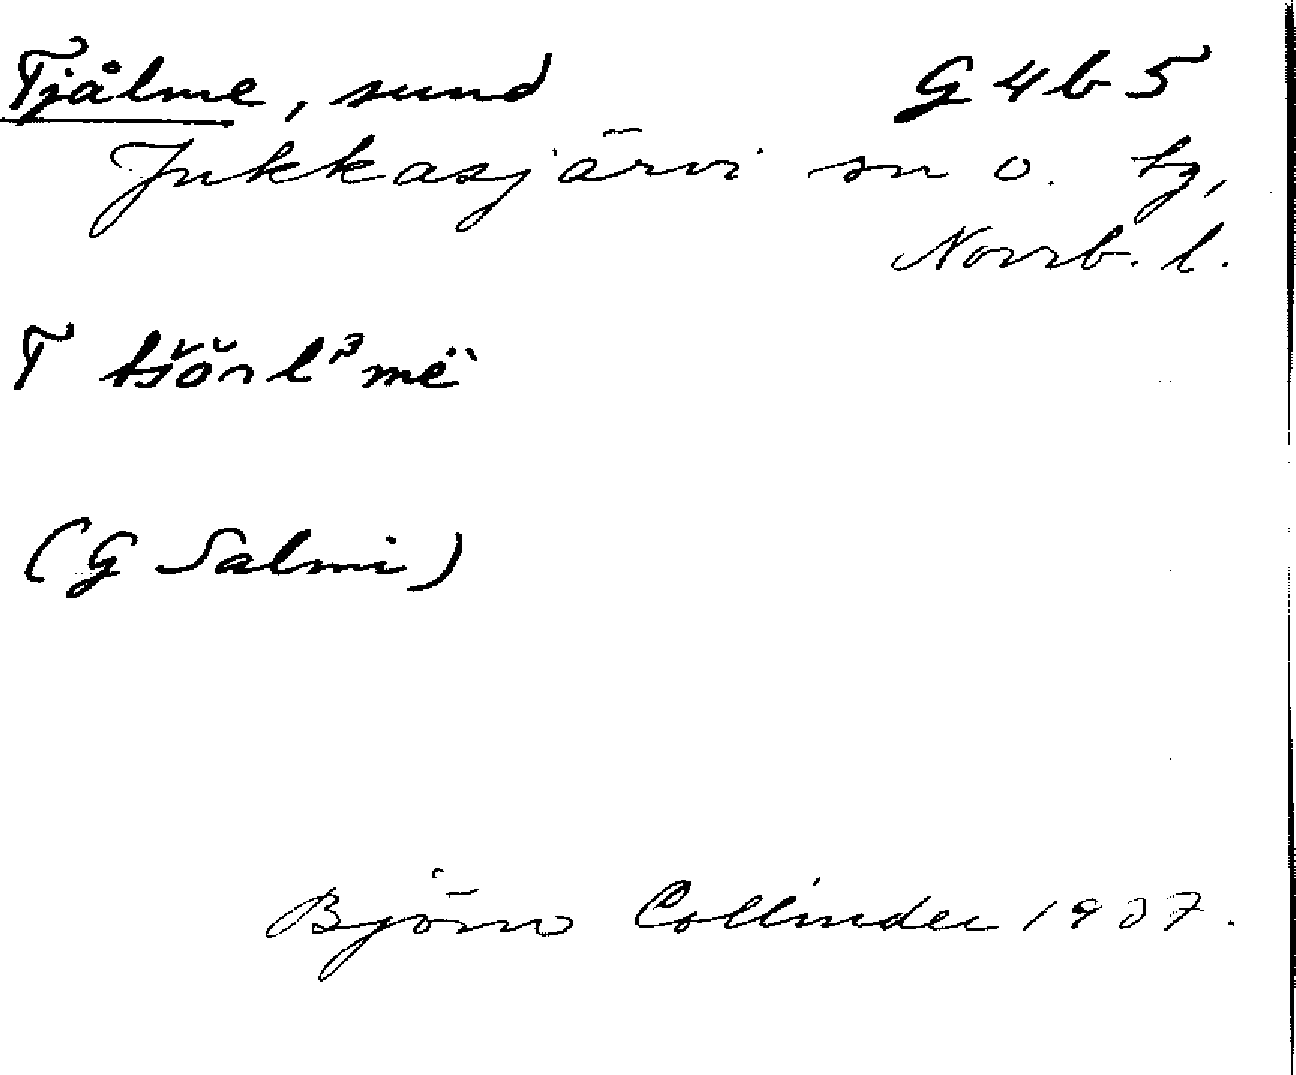 Tjålme, sund G 4 b 5
Jukkasjärvi sn o. tg,
Norrb. l.
T
(G Salmi)
Björn Collinder 1937.